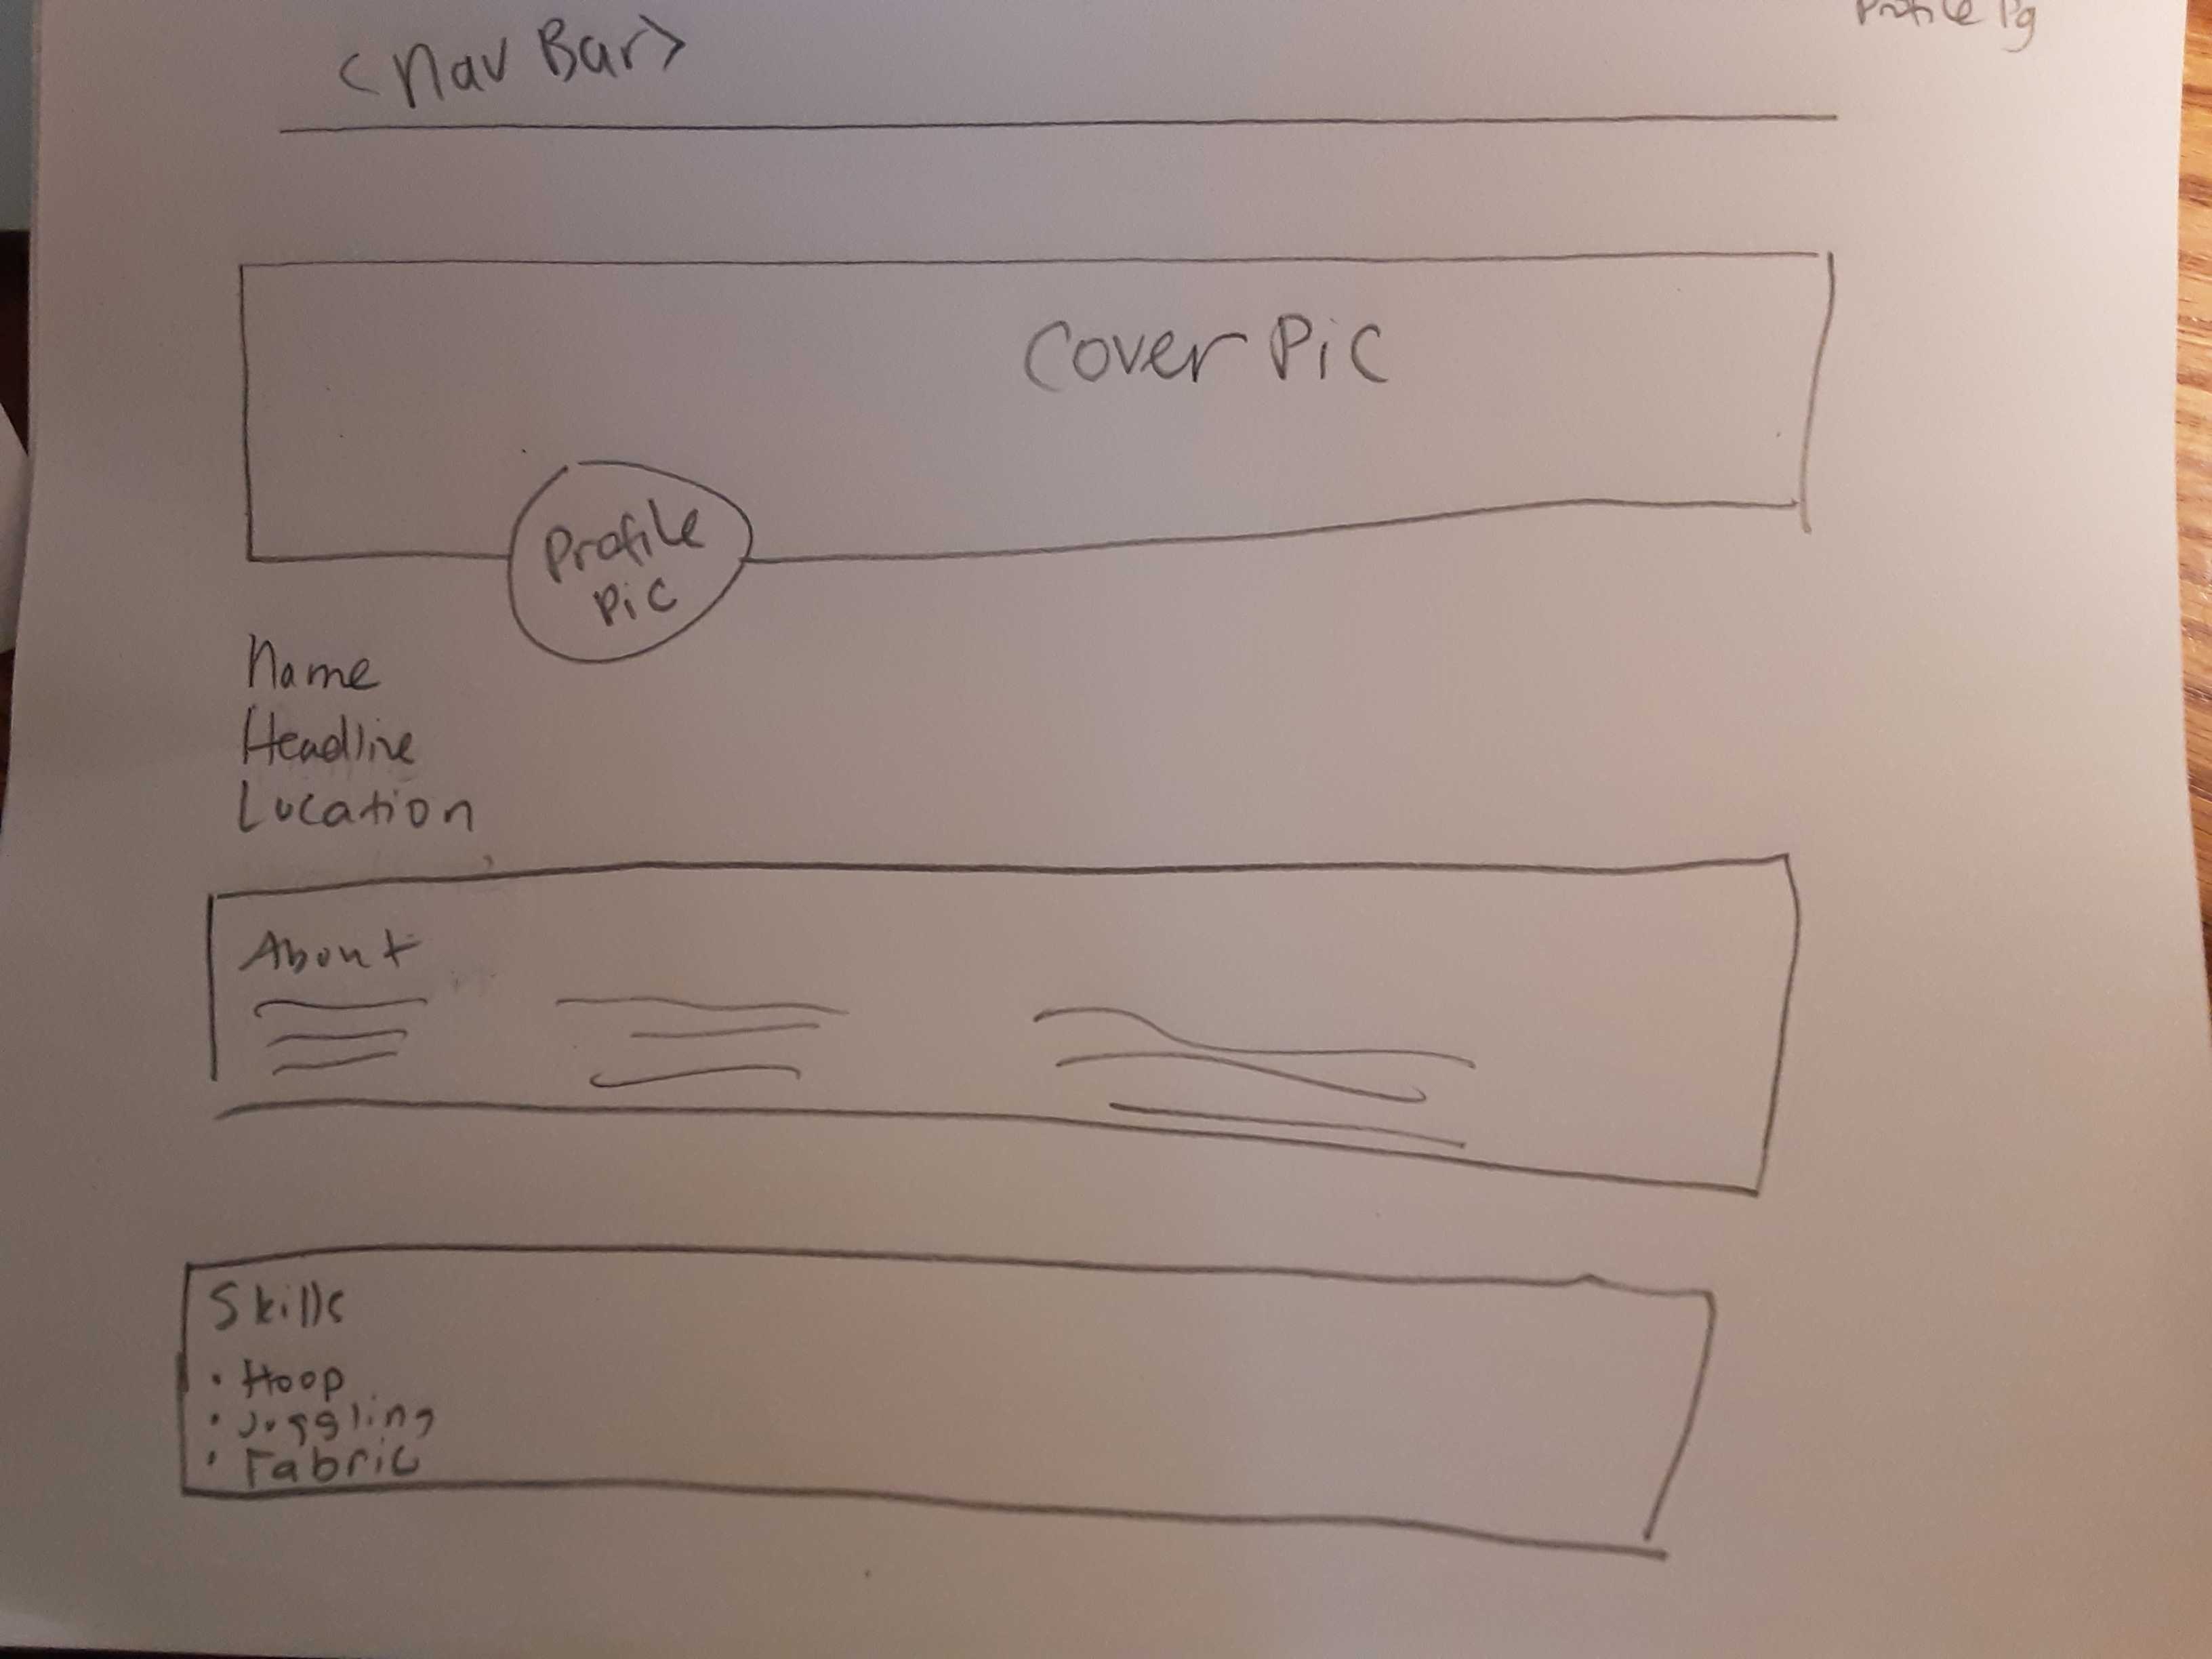 Profile Pg
<Nav Bar>
Cover Pic
Profile
Pic
Name
Headline
Location
About
Skills
• Hoop
• Juggling
• Fabric